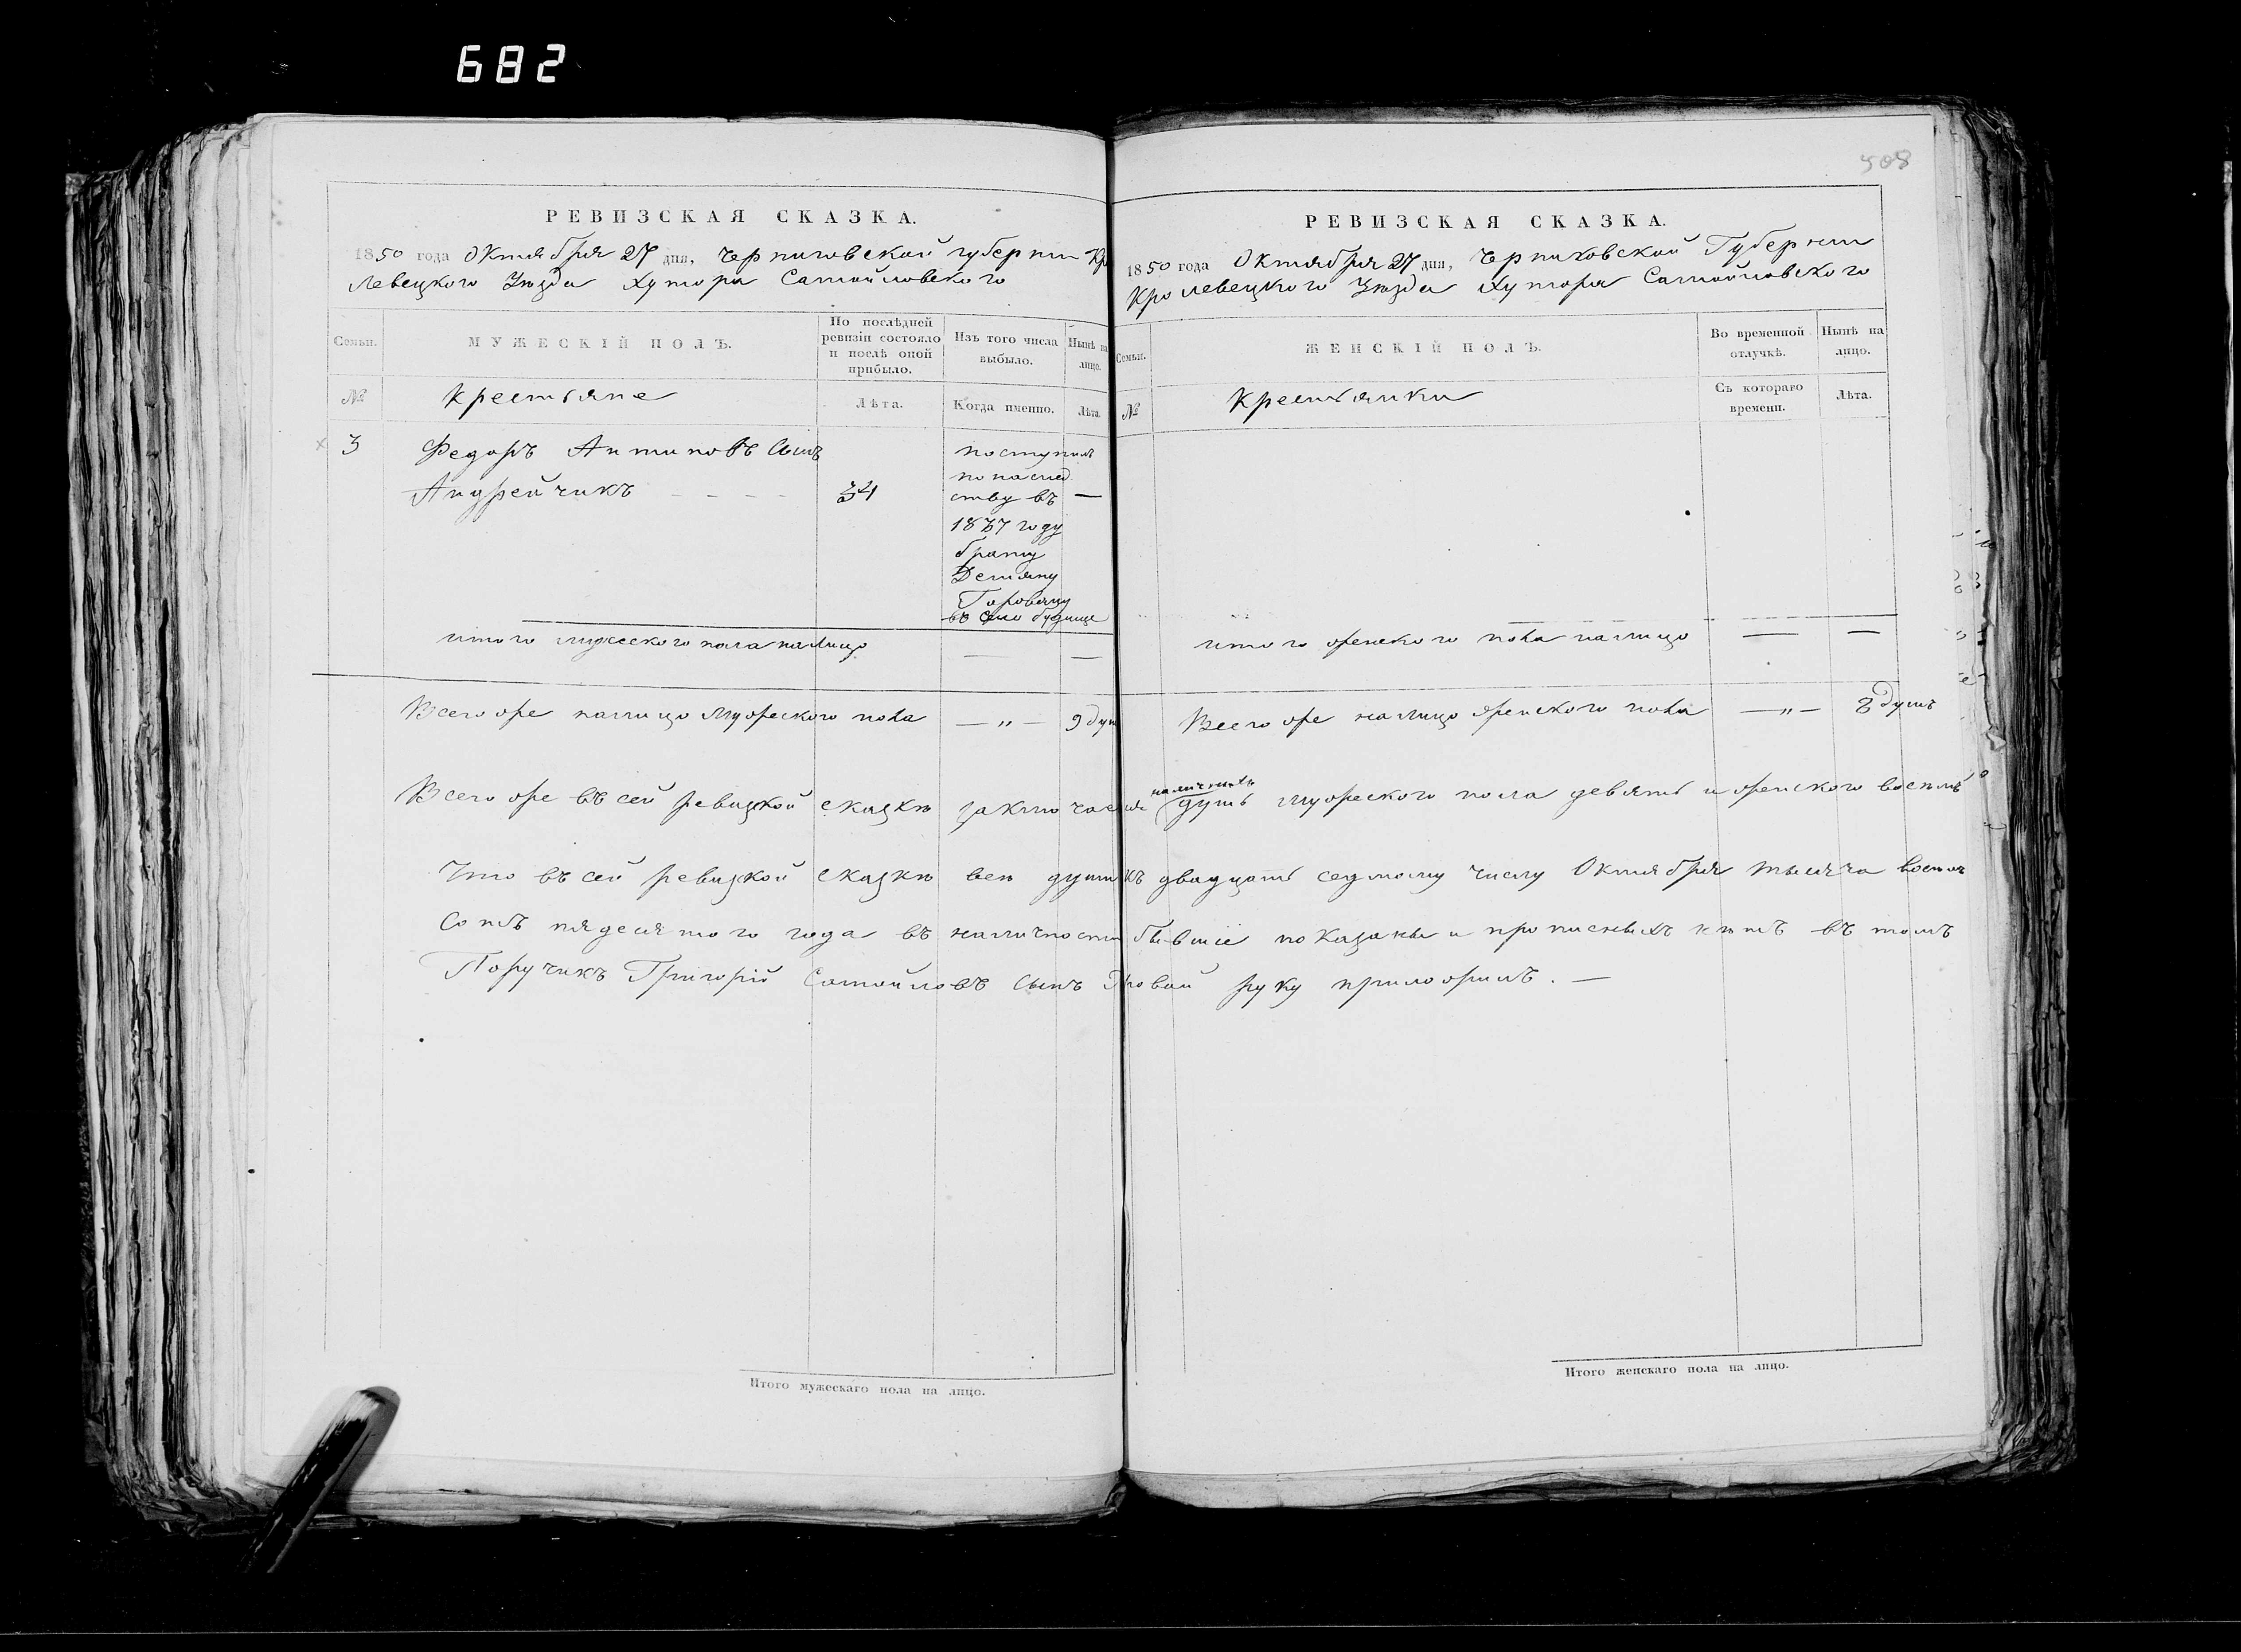 682
508
РЕВИЗСКАЯ СКАЗКА.
1850 года Октября 27 дня, Черниговской губернии Кро
левецкого Уѣзда Хутора Самойловского
Семьи.
МУЖЕСКІЙ ПОЛЪ.
По послѣдней ревизіи состояло и послѣ оной прибыло.
Изъ того числа выбыло.
Нынѣ на лицо.
№
Крестьяне
Лѣта.
Когда именно.
Лѣта.
3
Федоръ Антиповъ Сынъ
Андрейчикъ
34
поступилъ
по наслед
ству въ —
1837 году
брату
Демяну
въ село
итого мужеского пола налицо — —
Всего же налицо мужеского пола — „ — 9 душ
РЕВИЗСКАЯ СКАЗКА.
1850 года Октября 27 дня, Черниховской Губернии
Кролевецкого Уѣзда Хутора Самойловского
Семьи.
ЖЕНСКІЙ ПОЛЪ.
Во временной отлучкѣ.
Нынѣ на лицо.
№
Крестьянки
Съ котораго времени.
Лѣта.
итого женского пола налицо — —
Всего же налицо женского пола — „ — 8 душъ
Всего же въ сей ревизкой сказкѣ заключается наличныхъ душъ мужеского пола девять и женского восемь
Что въ сей ревизкой сказкѣ всѣ души къ двадцать седмому числу Октября тысяча восем
сотъ пядесятого года въ наличности бывшіе показаны и прописныхъ нѣтъ въ томъ
Поручикъ Григорій Самойловъ сынъ руку приложилъ. —
Итого мужескаго пола на лицо.
Итого женскаго пола на лицо.